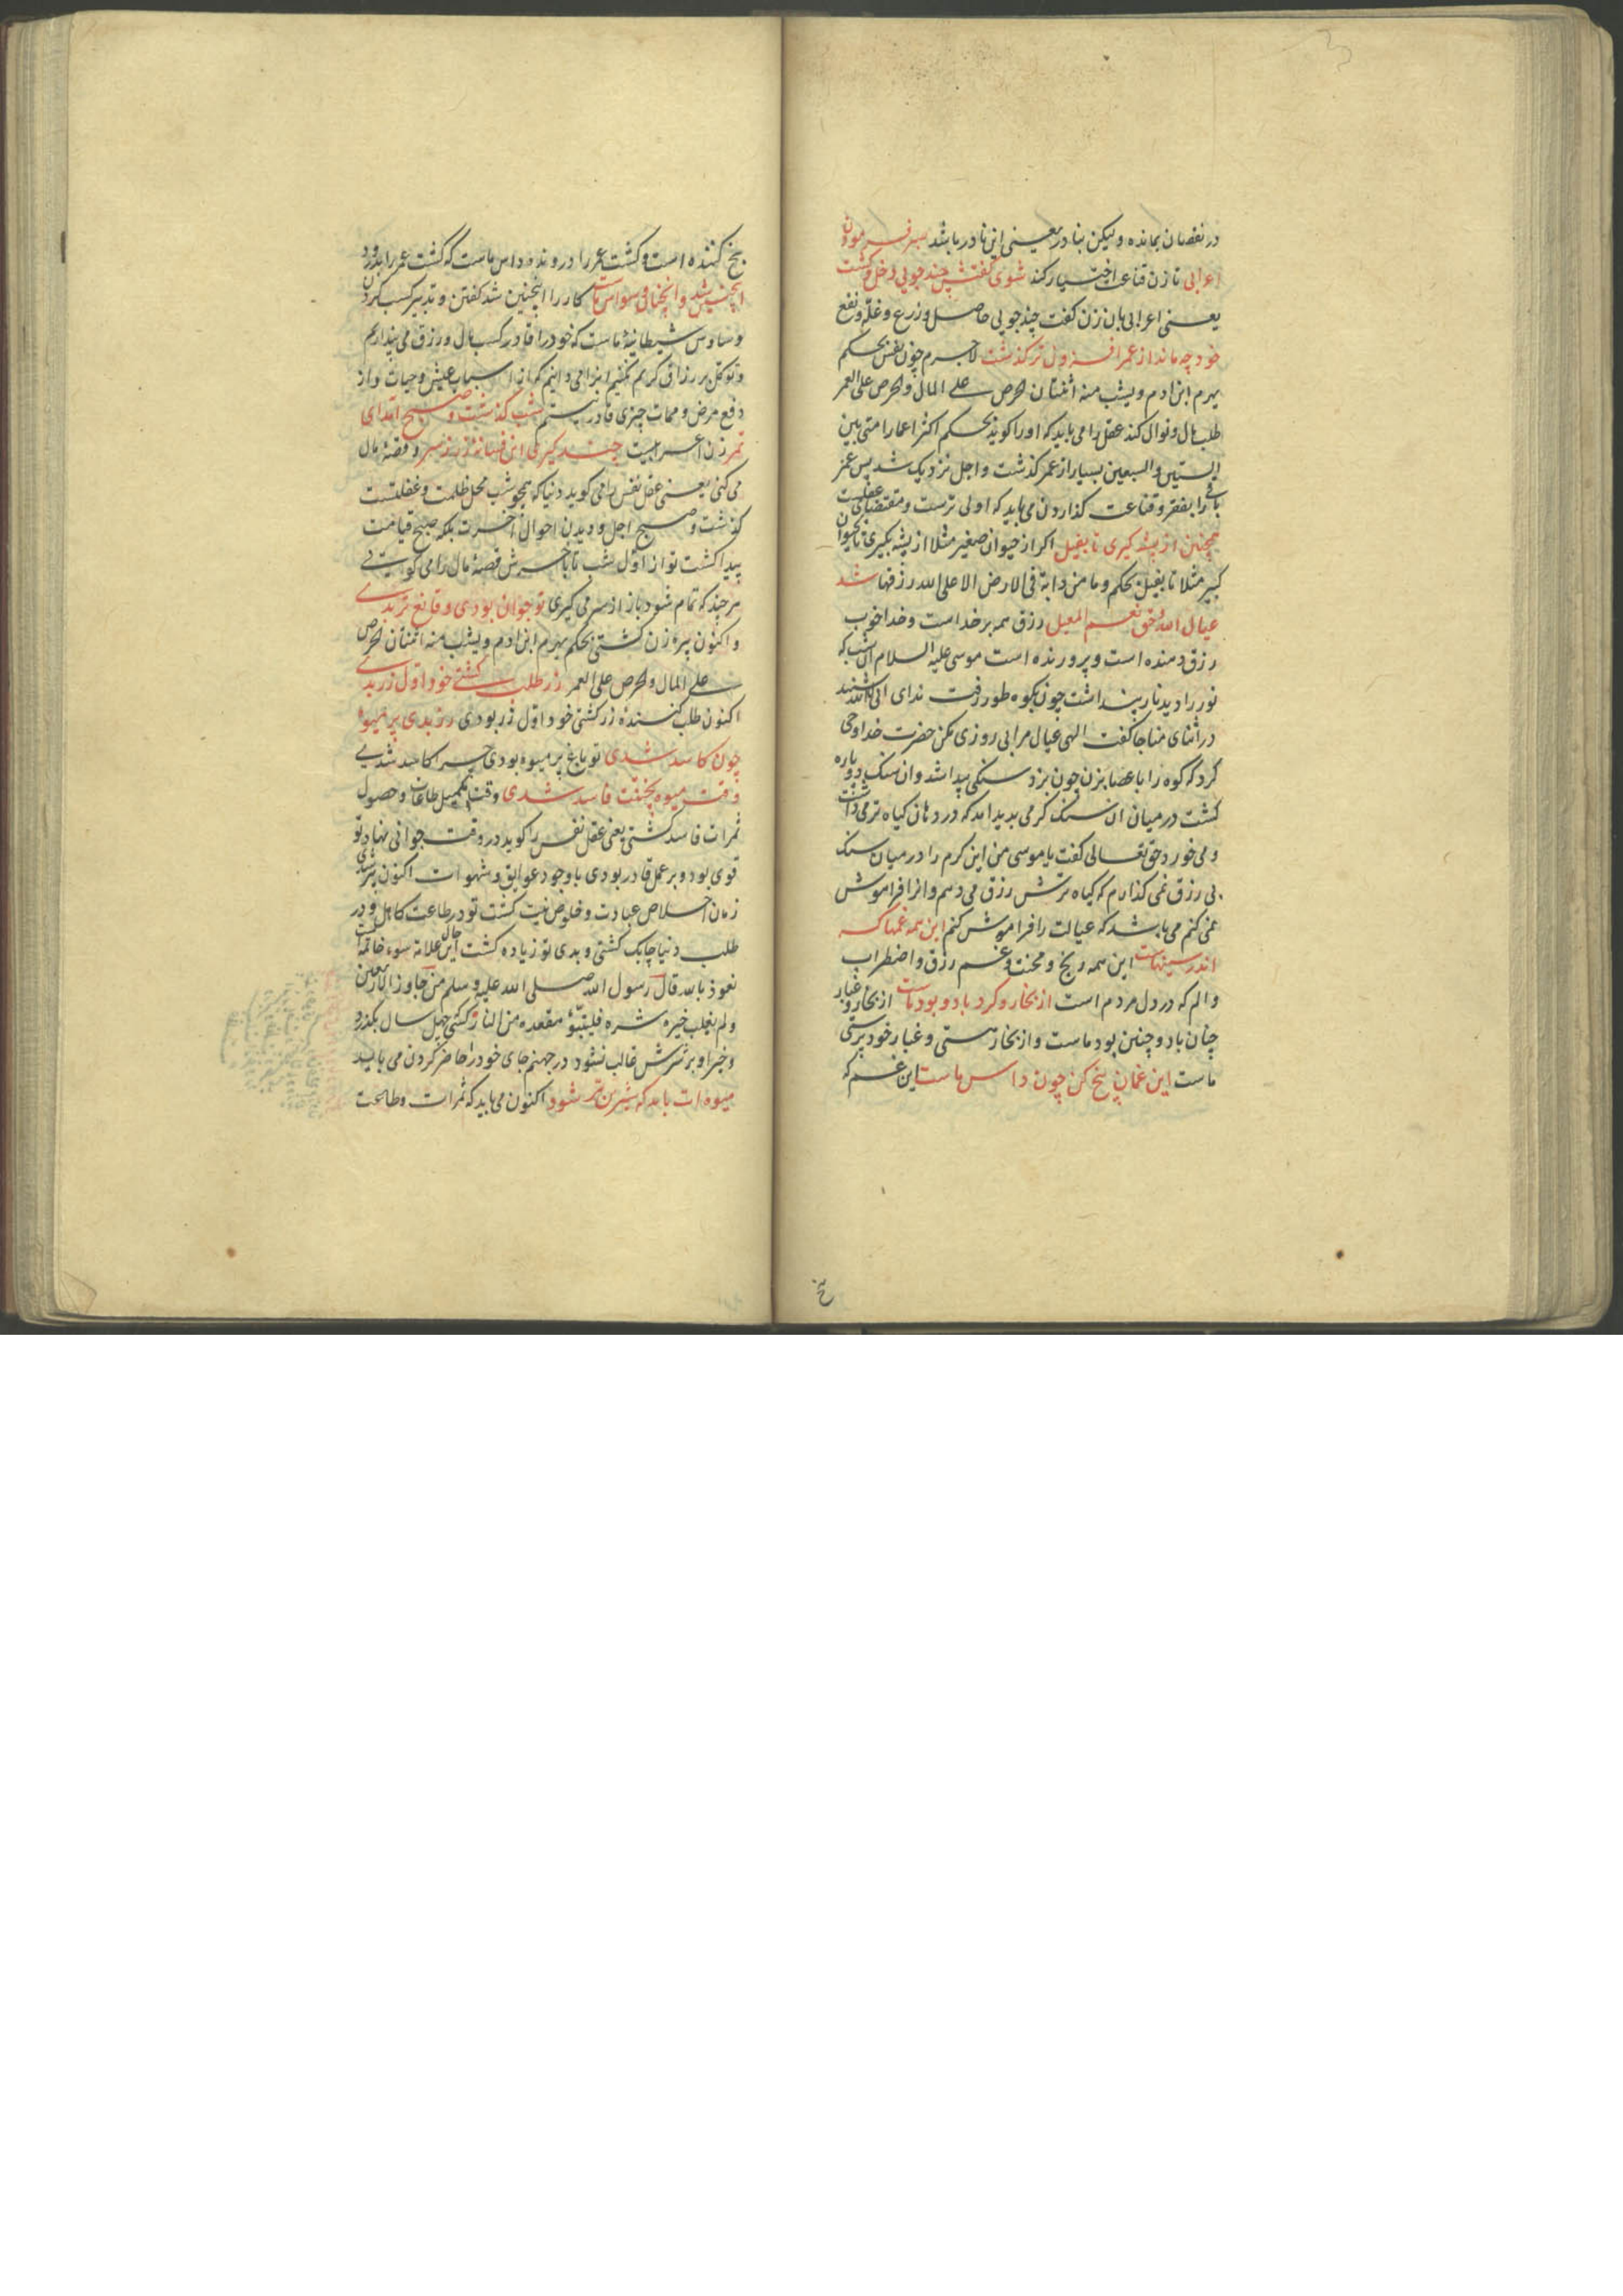 در نقصان بمانده ولیکن بنادر یعنی این نادر باشد صبر فرمودن
اعرابی تا زن قناعت اختیار کند شوی گفتش چند جویی دخل و کشت
یعنی اعرابی بان زن کفت چند جویی حاصل و زرع و غله و نفع
خود چه ماند از عمر افزون تر گذشت لاجرم چون نفس بحکم
یهرم ابن ادم ویشب منه اثنتان الحرص علی المال والحرص علی العمر
طلب مال و نوال کند عقل را می باید که او را کوید بحکم اکثر اعمار امتی بین
الستین والسبعین بسیار از عمر کذشت و اجل نزدیک شد پس عمر
باقی را بفقر و قناعت کذاردن می باید که اولی ترست و مقتضای عقلست
همچنین از پشه کیری تا بفیل اکر از حیوان صغیر مثلا از پشه بکیری تا بحیوان
کبیر مثلا تا بفیل بحکم وما من دابة فی الارض الا علی الله رزقها شد
عیال الله و حق نعم المعیل رزق همه بر خداست و خدا خوب
رزق دهنده است و پرورنده است موسی علیه السلام ان شب که
نور را دید نار پنداشت چون بکوه طور رفت ندای انی انا الله شنید
در اثنای مناجا کفت الهی عیال مرا بی روزی مکن حضرت خدا وحی
کرد که کوه را با عصا بزن چون بزد سنکی پیدا شد وان سنک دو پاره
کشت در میان ان سنک کرمی بدید امد که در دهان کیاه تر می داشت
و می خورد حق تعالی کفت یا موسی من این کرم را در میان سنک
بی رزق نمی کذارم که کیاه ترش رزق می دهم و انرا فراموش
نمی کنم می باشد که عیالت را فراموش کنم این همه غمها که
اندر سینهاست این همه رنج و محنت و غم رزق و اضطراب
و الم که در دل مردم است از بخار و کرد باد و بود ماست از بخار و غبار
چنان باد و چنین بود ماست و از بخار هستی و غبار خودپرستی
ماست این غمان بیخ کن چون داس ماست این غم که
بیخ کننده است و کشت عمر را درونده داس ماست که کشت عمر را بدرود
اینچنین شد وانچنان وسواس ماست کار را اینچنین شد کفتن و تدبیر کسب کردن
وساوس شیطانیهٔ ماست که خود را قادر کسب مال و رزق می پنداریم
و توکل بر رزاق کریم نکنیم از اسباب عیش وحیات و از
دفع مرض و ممات چیزی قادر نیستیم شب گذشت و صبح آمد ای
تمر زن اعرابیت چند کیری این فسانه زر ز سر و قصهٔ مال
می کنی یعنی عقل نفس را می کوید دنیا که همچو شب محل ظلمت و غفلتست
کذشت و صبح اجل و دیدن احوال آخرت بلکه صبح قیامت
پیدا کشت تو از اول شب تا باخرش قصهٔ مال را می کویی
هر چند که تمام شود باز از سر می کیری تو جوان بودی و قانع تر بدی
و اکنون پیره زن کشتی بحکم یهرم ابن ادم ویشب منه اثنتان الحرص
علی المال والحرص علی العمر زر طلب کشتی خود اول زر بدی
اکنون طلب کنندهٔ زر کشتی خود اول زر بودی رز بدی پر میوه
چون کاسد شدی تو باغ پر میوه بودی چرا کاسد شدی
وقت میوه پختنت فاسد شدی وقت تکمیل طاعات و حصول
ثمرات فاسد کشتی یعنی عقل نفس را کوید در وقت جوانی نهاد تو
قوی بود و بر عمل قادر بودی با وجود عوایق و شهوات اکنون پیر شدی
زمان اخلاص عبادت و خلوص نیت کشت تو در طاعت کاهل و در
طلب دنیا چابک کشتی و بدی تو زیاده کشت این حال علامة سوء خاتمه است
نعوذ بالله قال رسول الله صلی الله علیه وسلم من جاوز الاربعین
ولم یغلب خیره شره فلیتبوّأ مقعده من النار کسی چهل سال بکذرد
وخیر او بر شرش غالب نشود در جهنم جای خود را حاضر کردن می باید
میوه ات باید که شیرین تر شود اکنون می باید که ثمرات وطاعت